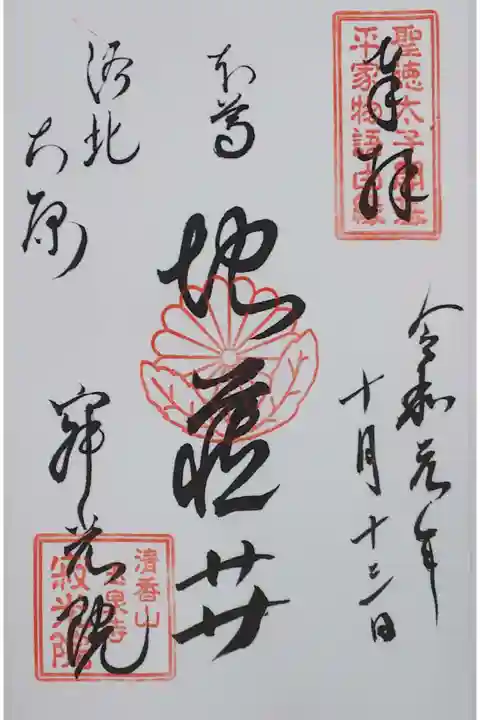 奉拝
聖徳太子開基
平家物語由縁
令和元年
十月十三日
本尊
地蔵𦬇
洛北
大原
寂光院
清香山
玉泉寺
寂光院